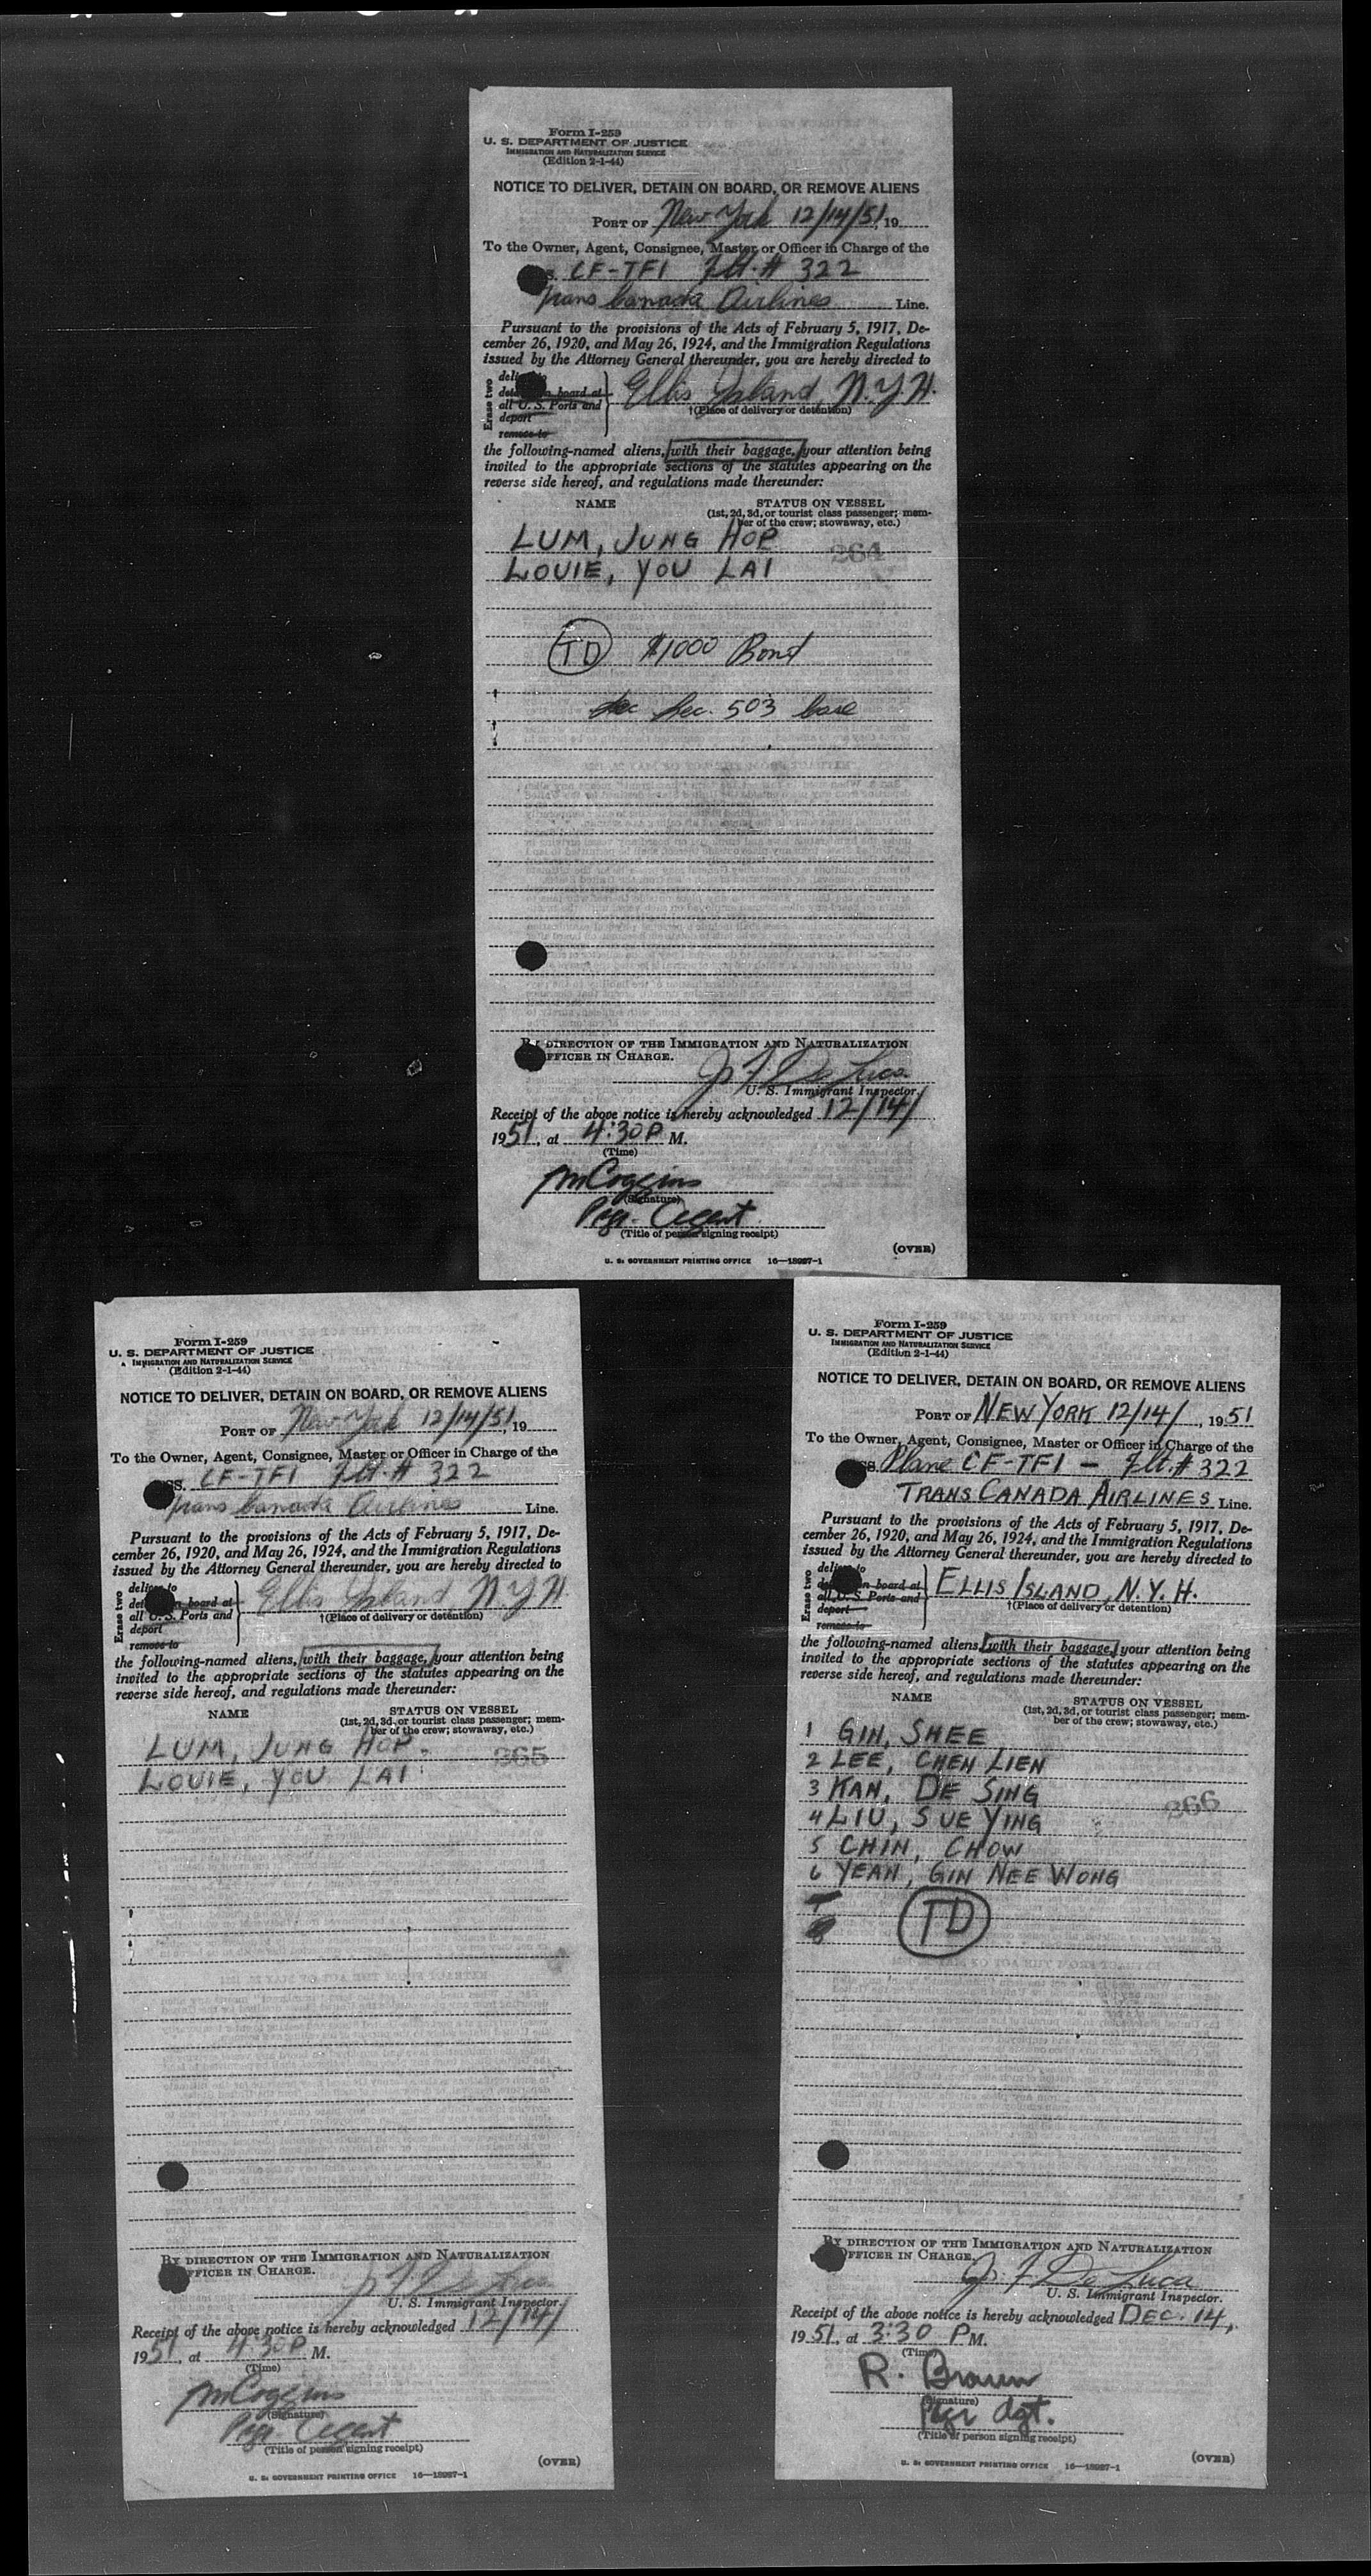 Form I-259
U. S. DEPARTMENT OF JUSTICE
IMMIGRATION AND NATURALIZATION SERVICE
(Edition 2-1-44)
NOTICE TO DELIVER, DETAIN ON BOARD, OR REMOVE ALIENS
PORT OF New York 12/14/51, 19
To the Owner, Agent, Consignee, Master or Officer in Charge of the
CF-TFI Flt. # 322
Trans Canada Airlines Line.
Pursuant to the provisions of the Acts of February 5, 1917, De-
cember 26, 1920, and May 26, 1924, and the Immigration Regulations
issued by the Attorney General thereunder, you are hereby directed to
Erase two
deliver to
detain on board at
all U. S. Ports and
deport
remove to
Ellis Island, N.Y.H.
†(Place of delivery or detention)
the following-named aliens, with their baggage, your attention being
invited to the appropriate sections of the statutes appearing on the
reverse side hereof, and regulations made thereunder:
NAME STATUS ON VESSEL
(1st, 2d, 3d, or tourist class passenger; mem-
ber of the crew; stowaway, etc.)
LUM, JUNG HOP 264
LOUIE, YOU LAI
TD $1000 Bond
Sec. 503 case
BY DIRECTION OF THE IMMIGRATION AND NATURALIZATION
OFFICER IN CHARGE.
J. F. De Luca
U. S. Immigrant Inspector.
Receipt of the above notice is hereby acknowledged 12/14/
1951, at 4:30 P M.
(Time)
M Coggins
(Signature)
Psgr. Agent
(Title of person signing receipt)
(OVER)
U. S. GOVERNMENT PRINTING OFFICE 16—18987-1
Form I-259
U. S. DEPARTMENT OF JUSTICE
IMMIGRATION AND NATURALIZATION SERVICE
(Edition 2-1-44)
NOTICE TO DELIVER, DETAIN ON BOARD, OR REMOVE ALIENS
PORT OF New York 12/14/51, 19
To the Owner, Agent, Consignee, Master or Officer in Charge of the
SS. CF-TFI Flt. # 322
Trans Canada Airlines Line.
Pursuant to the provisions of the Acts of February 5, 1917, De-
cember 26, 1920, and May 26, 1924, and the Immigration Regulations
issued by the Attorney General thereunder, you are hereby directed to
Erase two
deliver to
detain on board at
all U. S. Ports and
deport
remove to
Ellis Island, N.Y.H.
†(Place of delivery or detention)
the following-named aliens, with their baggage, your attention being
invited to the appropriate sections of the statutes appearing on the
reverse side hereof, and regulations made thereunder:
NAME STATUS ON VESSEL
(1st, 2d, 3d, or tourist class passenger; mem-
ber of the crew; stowaway, etc.)
LUM, JUNG HOP 265
LOUIE, YOU LAI
BY DIRECTION OF THE IMMIGRATION AND NATURALIZATION
OFFICER IN CHARGE.
J. F. De Luca
U. S. Immigrant Inspector.
Receipt of the above notice is hereby acknowledged 12/14/
1951, at 4:30 P M.
(Time)
M Coggins
(Signature)
Psgr. Agent
(Title of person signing receipt)
(OVER)
U. S. GOVERNMENT PRINTING OFFICE 16—18987-1
Form I-259
U. S. DEPARTMENT OF JUSTICE
IMMIGRATION AND NATURALIZATION SERVICE
(Edition 2-1-44)
NOTICE TO DELIVER, DETAIN ON BOARD, OR REMOVE ALIENS
PORT OF NEW YORK 12/14/, 1951
To the Owner, Agent, Consignee, Master or Officer in Charge of the
SS. Plane CF-TFI - Flt. # 322
TRANS CANADA AIRLINES Line.
Pursuant to the provisions of the Acts of February 5, 1917, De-
cember 26, 1920, and May 26, 1924, and the Immigration Regulations
issued by the Attorney General thereunder, you are hereby directed to
Erase two
deliver to
detain on board at
all U. S. Ports and
deport
remove to
ELLIS ISLAND, N.Y.H.
†(Place of delivery or detention)
the following-named aliens, with their baggage, your attention being
invited to the appropriate sections of the statutes appearing on the
reverse side hereof, and regulations made thereunder:
NAME STATUS ON VESSEL
(1st, 2d, 3d, or tourist class passenger; mem-
ber of the crew; stowaway, etc.)
1 GIN, SHEE
2 LEE, CHEN LIEN
3 KAN, DE SING
4 LIU, SUE YING 266
5 CHIN, CHOW
6 YEAN, GIN NEE WONG
TD
BY DIRECTION OF THE IMMIGRATION AND NATURALIZATION
OFFICER IN CHARGE.
J. F. De Luca
U. S. Immigrant Inspector.
Receipt of the above notice is hereby acknowledged DEC. 14,
1951, at 3:30 P M.
(Time)
R. Braun
(Signature)
Psgr Agt.
(Title of person signing receipt)
(OVER)
U. S. GOVERNMENT PRINTING OFFICE 16—18987-1